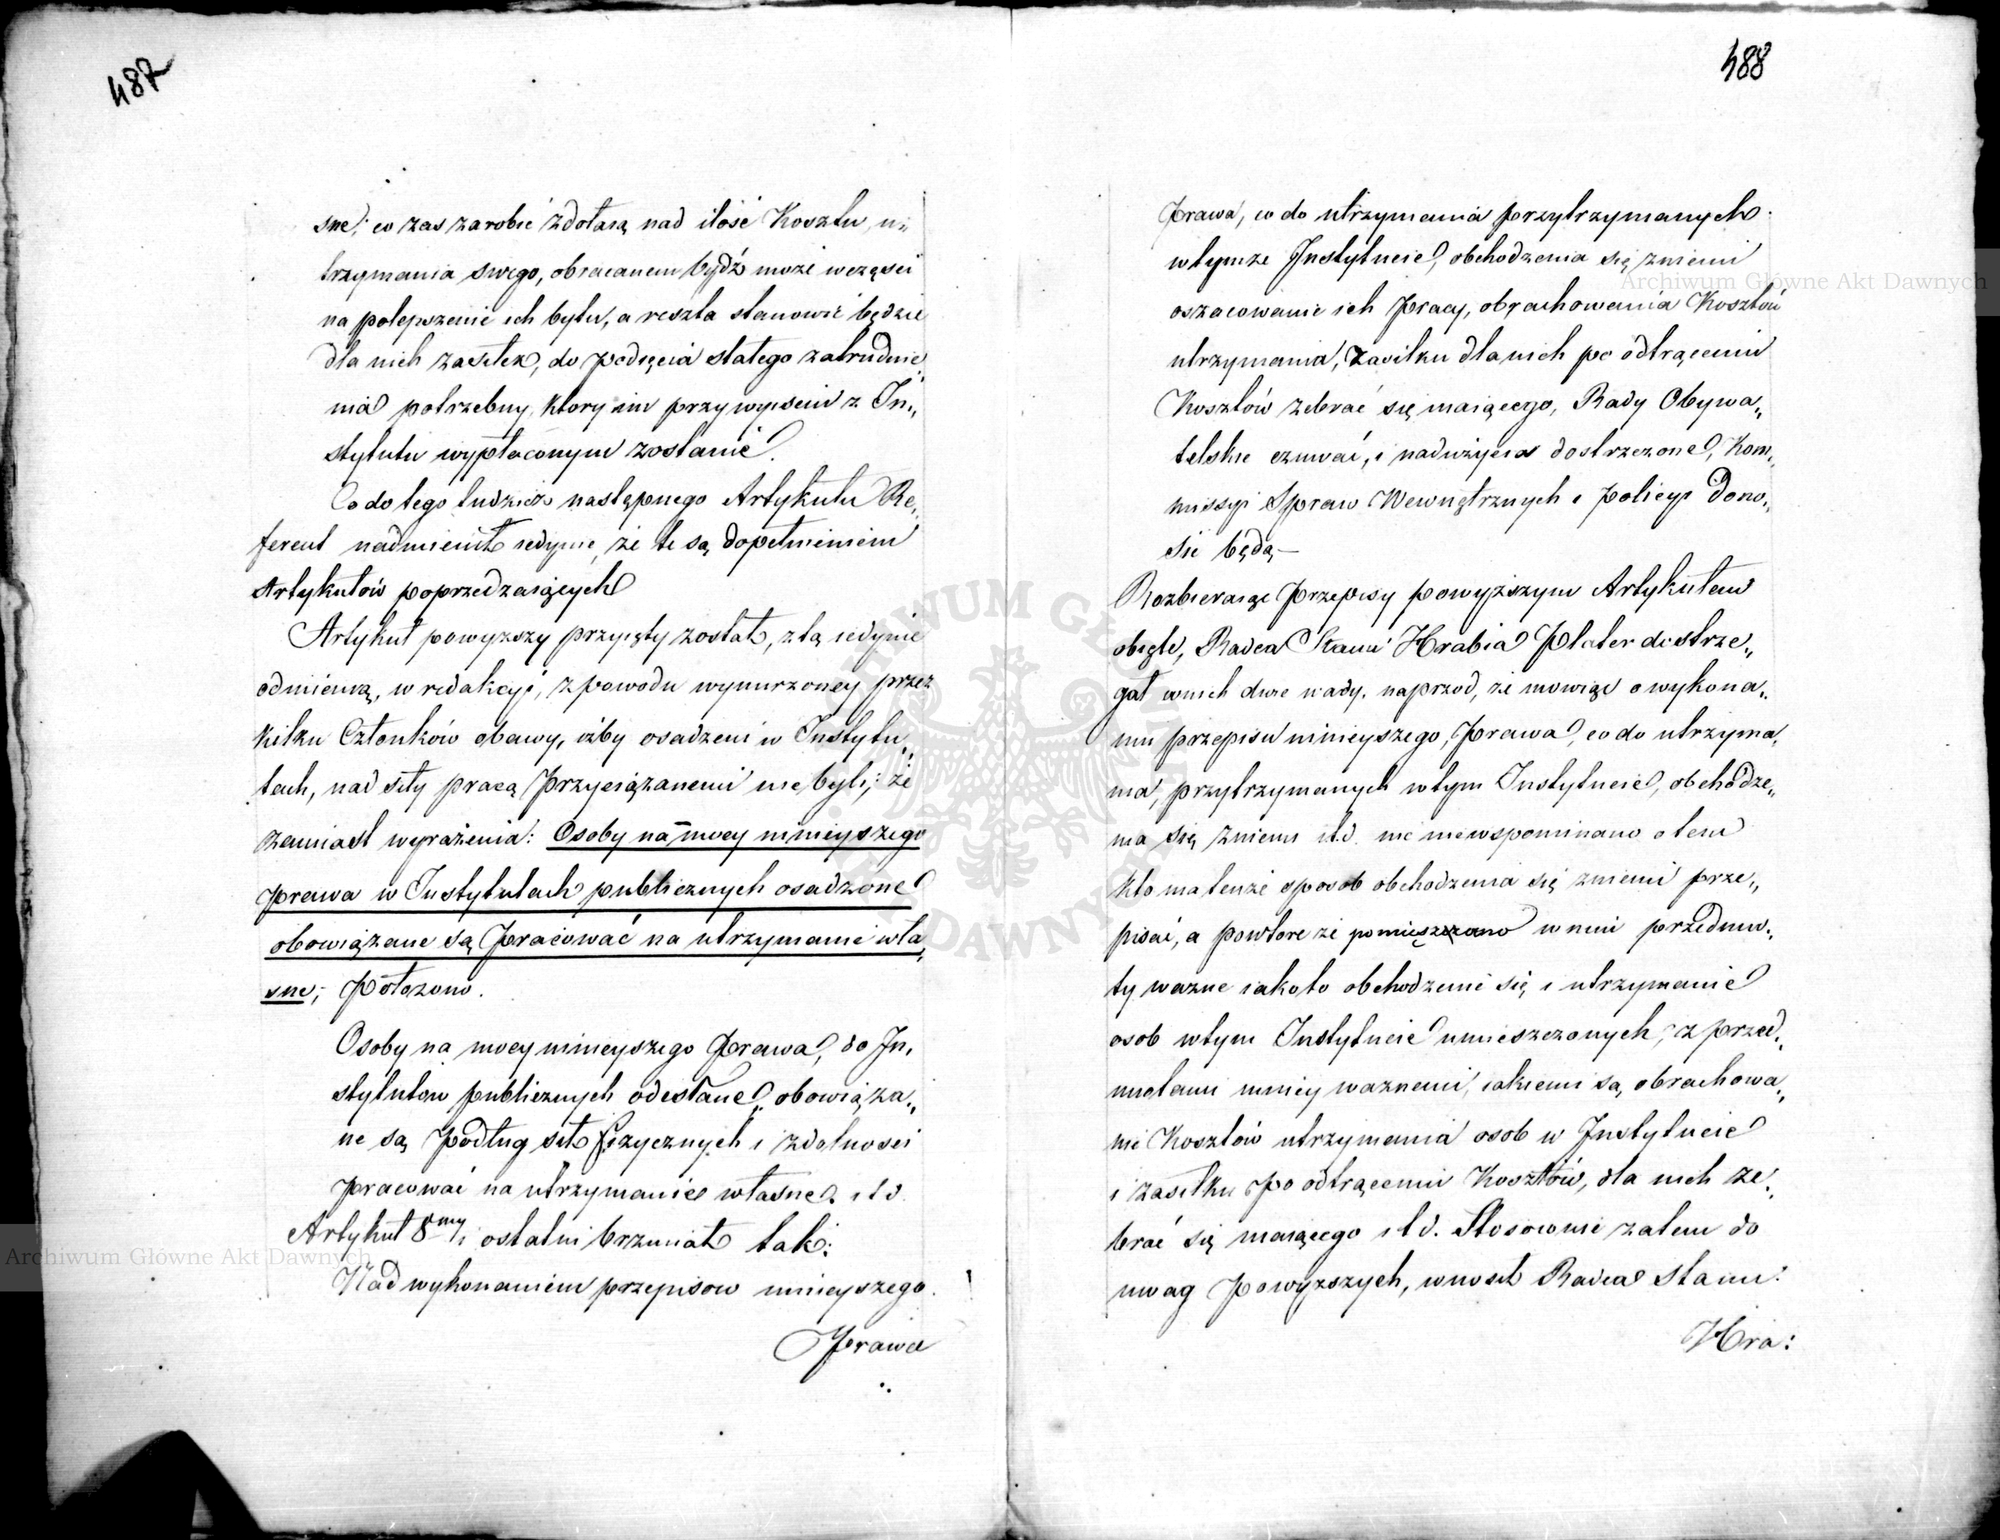 487
sne; co zas zarobić zdołaią nad ilość Kosztu, u„
trzymania swego, obracanem bydź może wczęści
na polepszenie ich bytu, a reszta stanowić będzie
dla nich zasiłek, do podięcia stałego zatrudnie„
nia potrzebny, ktory im przy wyisciu z In„
stytutu wypłaconym zostanie.
Co do tego tudzież następnego Artykułu Re„
ferent nadmienił iedynie, że te są dopełnieniem
Artykułów poprzedzaiących
Artykuł powyższy przyięty został, z tą iedynie
odmianą, w redakcyi, z powodu wynurzoney przez
kilku Członków obawy, iżby osadzeni w Instytu„
tach, nad siły pracą przyciązanemi nie byli; że
zamiast wyrażenia: Osoby na mocy ninieyszego
prawa w Instytutach publicznych osadzone
obowiązane są pracować na utrzymanie wła„
sne; położono.
Osoby na mocy ninieyszego Prawa, do In„
stytutów publicznych odesłane, obowiąza„
ne są podług sił fizycznych i zdolności
pracować na utrzymanie własne. itd.
Artykuł 8my i ostatni brzmiał tak:
Nad wykonaniem przepisow ninieyszego
Prawa
488
Prawa, co do utrzymania przytrzymanych
wtymże Instytucie, obchodzenia się zniemi
oszacowanie ich pracy, obrachowania Kosztów
utrzymania, zasiłku dla nich po odtrąceniu
Kosztów zebrać się maiącego, Rady Obywa„
telskie czuwać, i nadużycia dostrzeżone, Kom„
missyi Spraw Wewnętrznych i Policyi dono„
sić będą —
Rozbieraiąc Przepisy powyższym Artykułem
obięte, Radca Stanu Hrabia Plater dostrze„
gał wnich dwie wady. naprzod, że mowiąc o wykona„
niu przepisu ninieyszego, Prawa, co do utrzyma„
nia, przytrzymanych wtym Instytucie, obchodze„
nia się zniemi itd. nic niewspominano o tem
kto ma tenże sposob obchodzenia się zniemi prze„
pisać, a powtore że pomieszano w nim przedmio„
ty ważne iakoto obchodzenie się i utrzymanie
osob wtym Instytucie umieszczonych, z przed„
miotami mniey ważnemi, iakiemi są, obrachowa„
nie Kosztów utrzymania osob w Instytucie
i zasiłku po odtrąceniu Kosztów, dla nich ze„
brać się maiącego itd. Stosownie zatem do
uwag powyższych, wnosił Radca Stanu:
Hra:
Archiwum Główne Akt Dawnych
Archiwum Główne Akt Dawnych